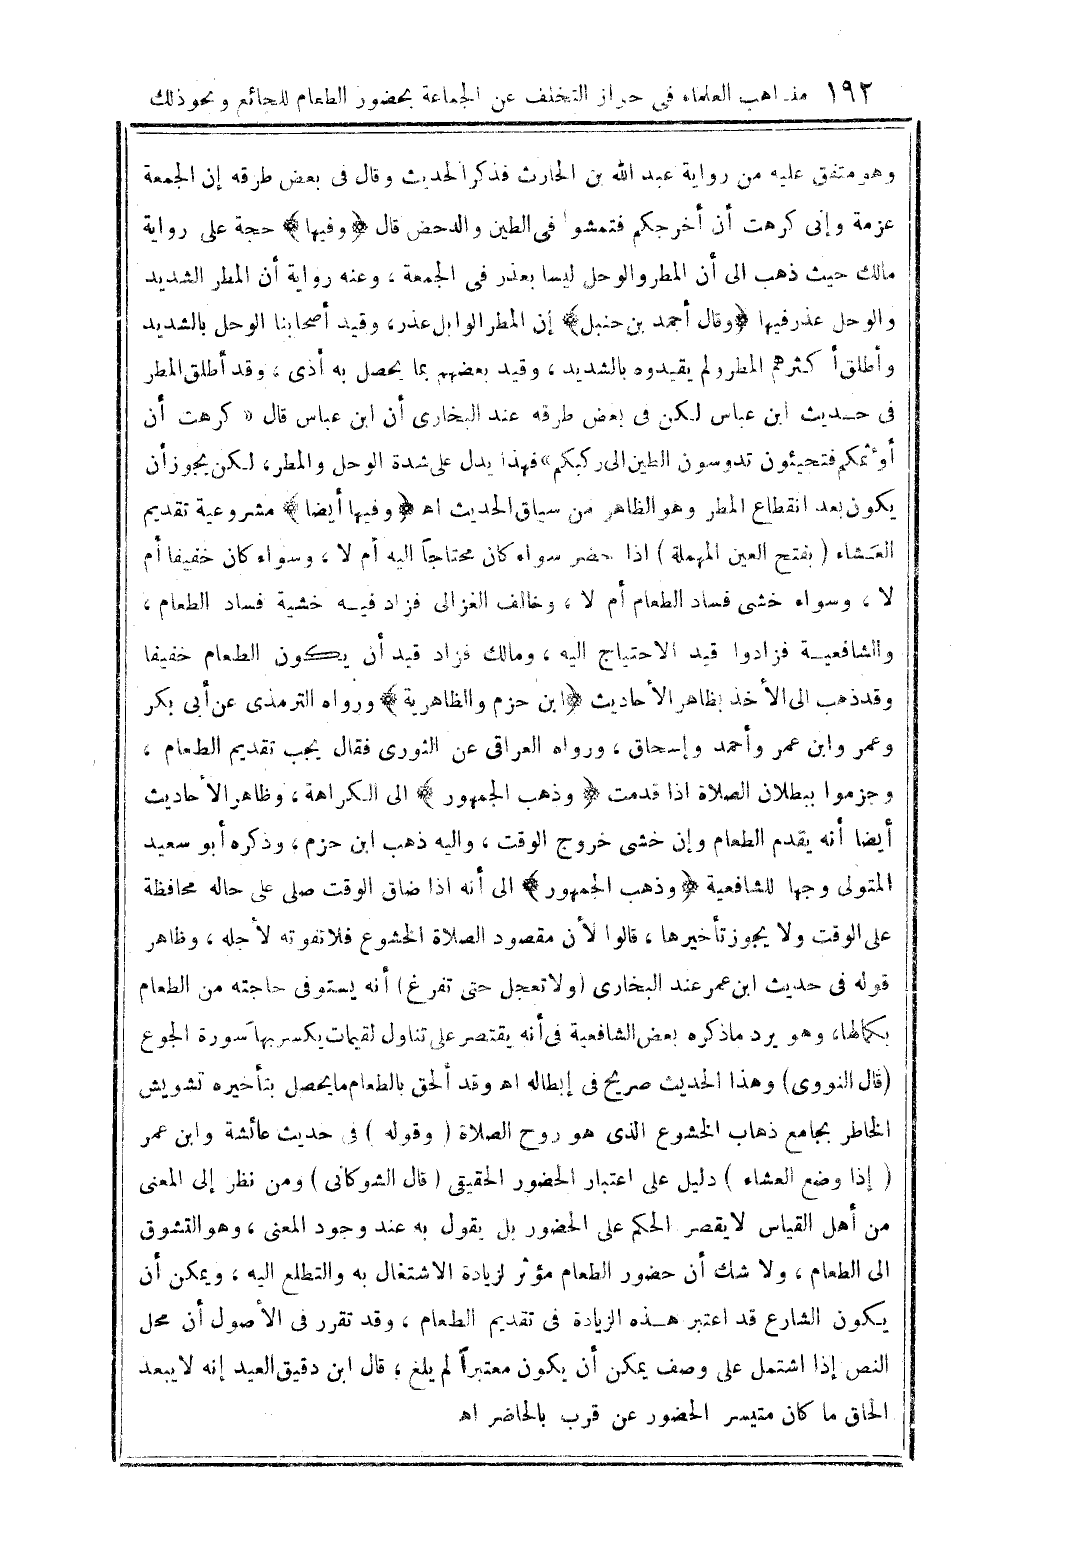 ١٩٢ مذاهب العلماء فى جواز التخلف عن الجماعة بحضور الطعام للجائع ونحو ذلك
وهو متفق عليه من رواية عبد الله بن الحارث فذكر الحديث وقال فى بعض طرقه إن الجمعة
عزمة وإنى كرهت أن أخرجكم فتمشوا فى الطين والدحض قال ﴿وفيها﴾ حجة على رواية
مالك حيث ذهب الى أن المطر والوحل ليسا بعذر فى الجمعة ، وعنه رواية أن المطر الشديد
والوحل عذر فيها ﴿وقال أحمد بن حنبل﴾ إن المطر الوابل عذر، وقيد أصحابنا الوحل بالشديد
وأطلق أكثرهم المطر ولم يقيدوه بالشديد ، وقيد بعضهم بما يحصل به أذى ، وقد أطلق المطر
فى حـديث ابن عباس لكن فى بعض طرقه عند البخارى أن ابن عباس قال « كرهت أن
أوثمكم فتجيئون تدوسون الطين الى ركبكم» فهذا يدل على شدة الوحل والمطر، لكن يجوز أن
يكون بعد انقطاع المطر وهو الظاهر من سياق الحديث اه ﴿وفيها أيضا﴾ مشروعية تقديم
العَـشاء ( بفتح العين المهملة ) اذا حضر سواء كان محتاجاً اليه أم لا ، وسواء كان خفيفا أم
لا ، وسواء خشى فساد الطعام أم لا ، وخالف الغزالى فزاد فيـه خشية فساد الطعام ،
والشافعيـة فزادوا قيد الاحتياج اليه ، ومالك فزاد قيد أن يكون الطعام خفيفا
وقد ذهب الى الأخذ بظاهر الأحاديث ﴿ابن حزم والظاهرية﴾ ورواه الترمذى عن أبى بكر
وعمر وابن عمر وأحمد وإسحاق ، ورواه العراقى عن الثورى فقال يجب تقديم الطعام ،
وجزموا ببطلان الصلاة اذا قدمت ﴿ وذهب الجمهور ﴾ الى الكراهة ، وظاهر الأحاديث
أيضا أنه يقدم الطعام وإن خشى خروج الوقت ، واليه ذهب ابن حزم ، وذكره أبو سعيد
المتولى وجها للشافعية ﴿وذهب الجمهور﴾ الى أنه اذا ضاق الوقت صلى على حاله محافظة
على الوقت ولا يجوز تأخيرها ، قالوا لأن مقصود الصلاة الخشوع فلا تفوته لأجله ، وظاهر
قوله فى حديث ابن عمر عند البخارى (ولا تعجل حتى تفرغ) أنه يستوفى حاجته من الطعام
بكمالها، وهو يرد ما ذكره بعض الشافعية فى أنه يقتصر على تناول لقيمات يكسر بها سَورة الجوع
(قال النووى) وهذا الحديث صريح فى إبطاله اه وقد ألحق بالطعام ما يحصل بتأخيره تشويش
الخاطر بجامع ذهاب الخشوع الذى هو روح الصلاة ( وقوله ) فى حديث عائشة وابن عمر
( إذا وضع العشاء ) دليل على اعتبار الحضور الحقيقى ( قال الشوكانى ) ومن نظر إلى المعنى
من أهل القياس لا يقصر الحكم على الحضور بل يقول به عند وجود المعنى ، وهو التشوق
الى الطعام ، ولا شك أن حضور الطعام مؤثر لزيادة الاشتغال به والتطلع اليه ، ويمكن أن
يكون الشارع قد اعتبر هـذه الزيادة فى تقديم الطعام ، وقد تقرر فى الأصول أن محل
النص إذا اشتمل على وصف يمكن أن يكون معتبراً لم يلغ ، قال ابن دقيق العيد إنه لا يبعد
الحاق ما كان متيسر الحضور عن قرب بالحاضر اه